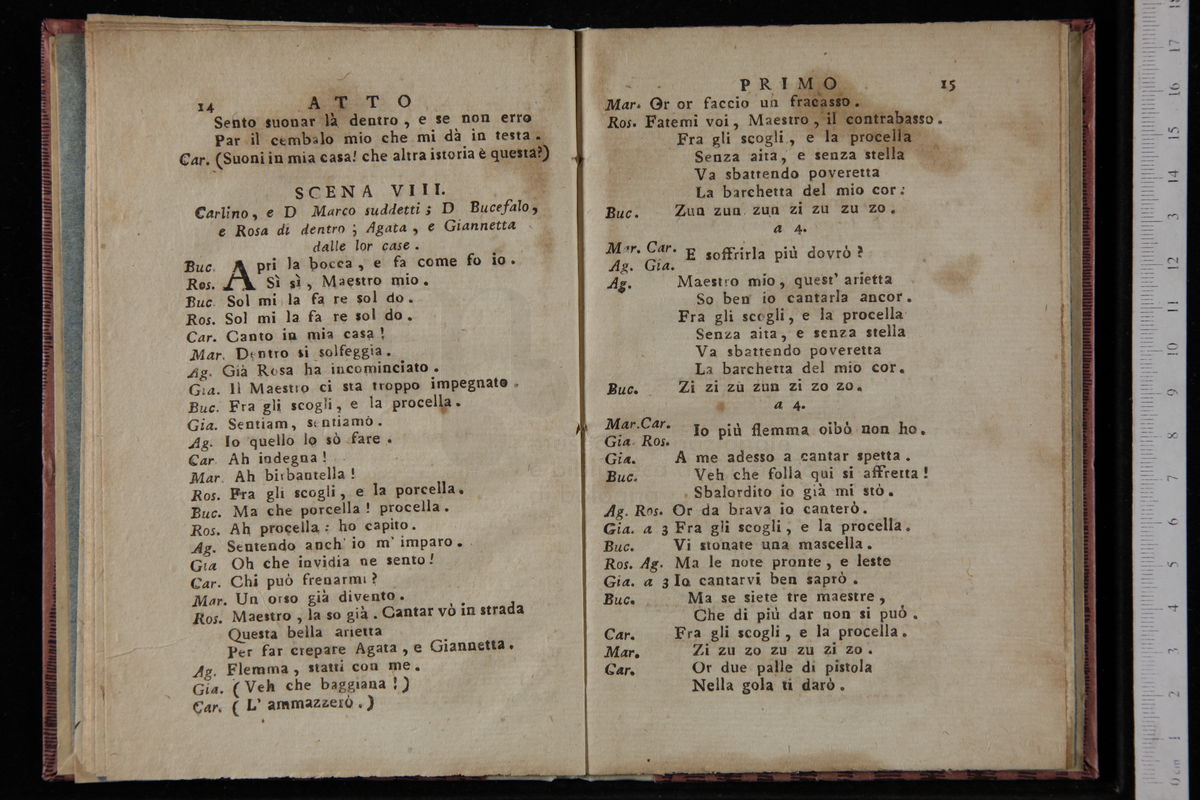 14 ATTO
Sento suonar là dentro, e se non erro
Par il cembalo mio che mi dà in testa.
Car. (Suoni in mia casa! che altra istoria è questa?)
SCENA VIII.
Carlino, e D Marco suddetti; D Bucefalo,
e Rosa di dentro; Agata, e Giannetta
dalle lor case.
Buc. Apri la bocca, e fa come fo io.
Ros. Sì sì, Maestro mio.
Buc. Sol mi la fa re sol do.
Ros. Sol mi la fa re sol do.
Car. Canto in mia casa!
Mar. Dentro si solfeggia.
Ag. Già Rosa ha incominciato.
Gia. Il Maestro ci sta troppo impegnato.
Buc. Fra gli scogli, e la procella.
Gia. Sentiam, sentiamo.
Ag. Io quello lo sò fare.
Car. Ah indegna!
Mar. Ah birbantella!
Ros. Fra gli scogli, e la porcella.
Buc. Ma che porcella! procella.
Ros. Ah procella: ho capito.
Ag. Sentendo anch' io m' imparo.
Gia Oh che invidia ne sento!
Car. Chi può frenarmi?
Mar. Un orso già divento.
Ros. Maestro, la so già. Cantar vò in strada
Questa bella arietta
Per far crepare Agata, e Giannetta.
Ag. Flemma, statti con me.
Gia. (Veh che baggiana!)
Car. (L' ammazzerò.)
PRIMO 15
Mar. Or or faccio un fracasso.
Ros. Fatemi voi, Maestro, il contrabasso.
Fra gli scogli, e la procella
Senza aita, e senza stella
Va sbattendo poveretta
La barchetta del mio cor:
Buc. Zun zun zun zi zu zu zo.
a 4.
Mar. Car. E soffrirla più dovrò?
Ag. Gia.
Ag. Maestro mio, quest' arietta
So ben io cantarla ancor.
Fra gli scogli, e la procella
Senza aita, e senza stella
Va sbattendo poveretta
La barchetta del mio cor.
Buc. Zi zi zu zun zi zo zo.
a 4.
Mar. Car. Io più flemma oibò non ho.
Gia. Ros.
Gia. A me adesso a cantar spetta.
Buc. Veh che folla qui si affretta!
Sbalordito io già mi stò.
Ag. Ros. Or da brava io canterò.
Gia. a 3 Fra gli scogli, e la procella.
Buc. Vi stonate una mascella.
Ros. Ag. Ma le note pronte, e leste
Gia. a 3 Io cantarvi ben saprò.
Buc. Ma se siete tre maestre,
Che di più dar non si può.
Car. Fra gli scogli, e la procella.
Mar. Zi zu zo zu zu zi zo.
Car. Or due palle di pistola
Nella gola ti darò.